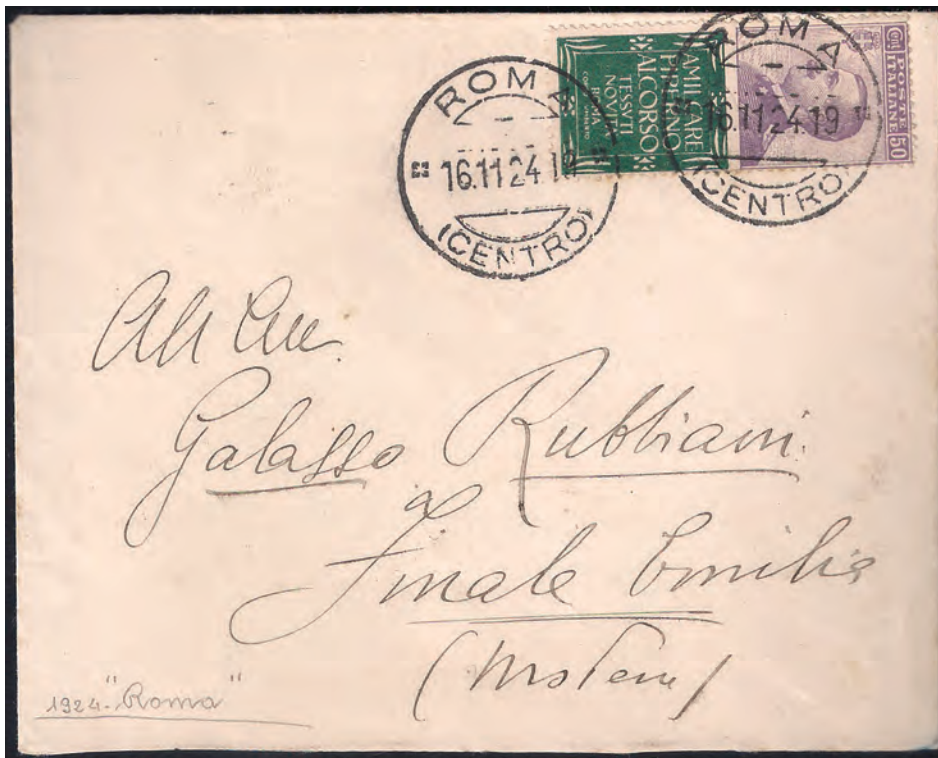 ROMA
16.11.24.19
(CENTRO)
AMILCARE
PIPERNO
AL CORSO
TESSVTI
NOVITA
ROMA
ROMA
16.11.24.19
(CENTRO)
POSTE
ITALIANE
Cent. 50
All'Avv.
Galasso Rubbiani
a
Finale Emilia
(Modena)
1924 - "Roma"